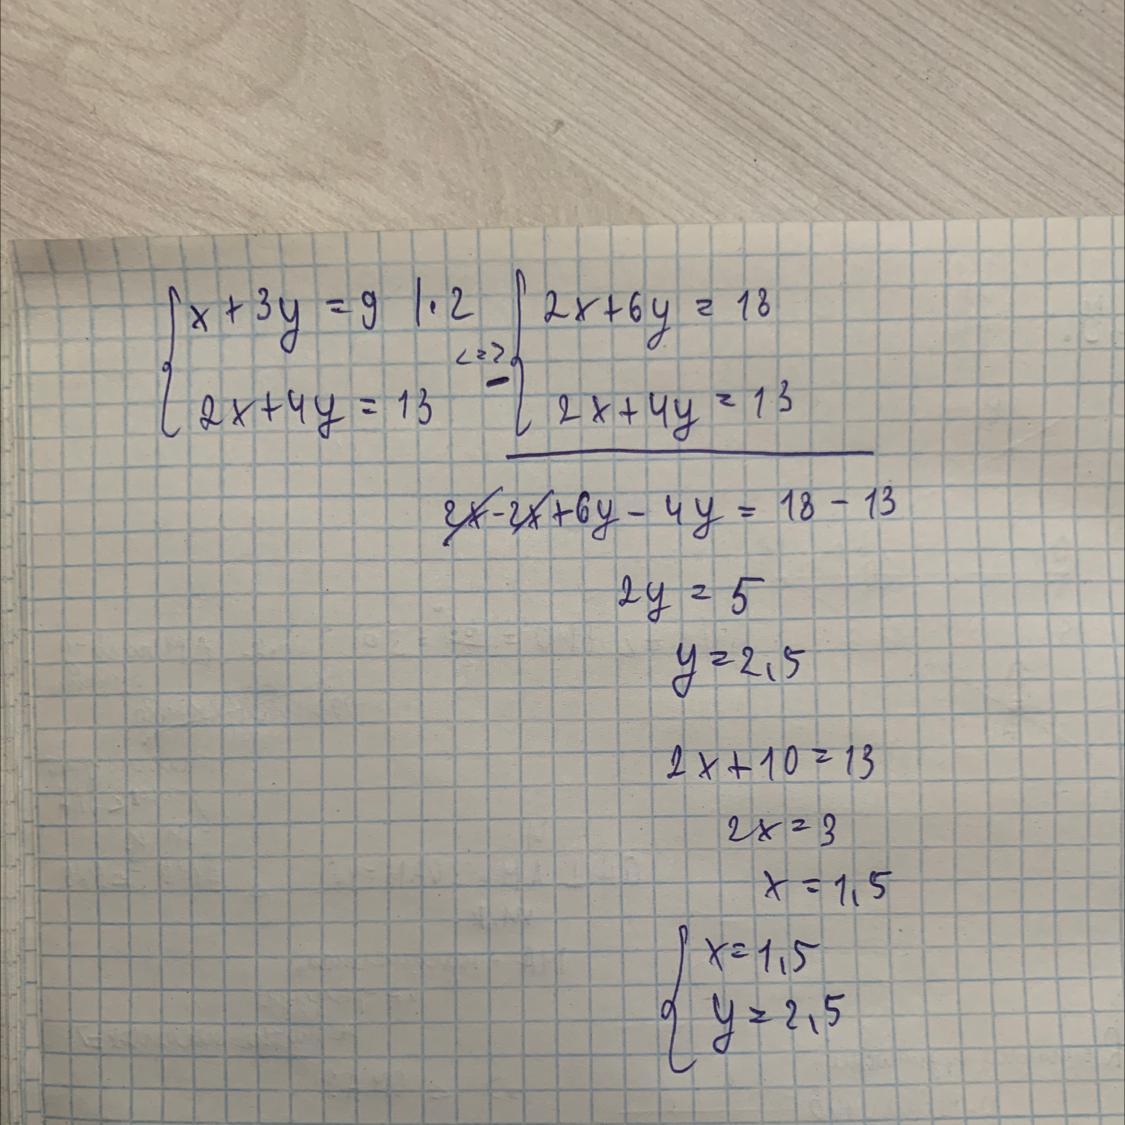 x + 3y = 9 |· 2 <=> 2x + 6y = 18
2x + 4y = 13 − 2x + 4y = 13
2x - 2x + 6y - 4y = 18 - 13
2y = 5
y = 2,5
2x + 10 = 13
2x = 3
x = 1,5
x = 1,5
y = 2,5